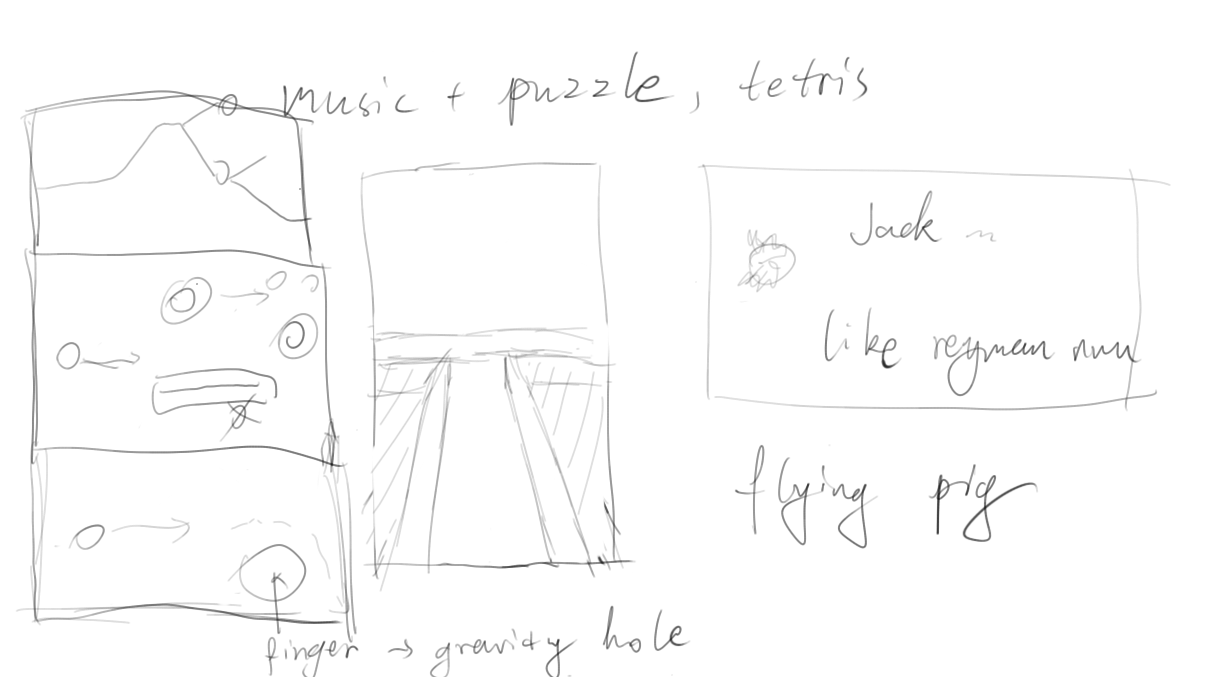 music + puzzle, tetris
Jack ~
like reyman run
flying pig
finger → gravity hole